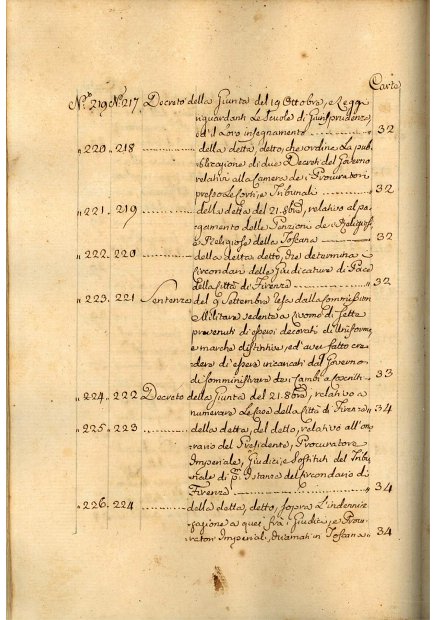 Carte
N.° 219 N.° 217 Decreto della Giunta del 19 Ottobre, e Regg.i
riguardanti Le Scuole di Giurisprudenza,
ed il Loro insegnamento ............ 32
" 220 . 218 ............ della detta, detto, che ordina La pub-
blicazione di due Decreti del Governo
relativi alla Camera dei Procuratori
presso Le Corti, e Tribunali ............ " 32
" 221 . 219 ............ della detta del 21. 8bre, relativo al pa-
gamento delle Pensioni dei Religiosi,
e Religiose della Toscana ............ " 32
" 222 . 220 ............ della detta detto, che determina i
Circondari delle Giudicature di Pace
della Città di Firenze ............ " 32
" 223 . 221 Sentenza del 9 Settembre resa dalla Commissione
Militare sedente a contro di Sette
prevenuti di essersi decorati di Uniforme,
e marche distintive, ed aver fatto cre-
dere di essere incaricati dal Governo
di somministrare dei Cambi a' coscritti 33
" 224 . 222 Decreto della Giunta del 21. 8bre, relativo a
numerare Le Case della Città di Firenze " 34
" 225 . 223 ............ della detta, del detto, relativo all'ono-
rario del Presidente, Procuratore
Imperiale, Giudici, e Sostituti del Tribu-
nale di P.a Istanza del Circondario di
Firenze ............ " 34
" 226 . 224 ............ della detta, detto, sopra L'indenniz-
zazione a quei fra i Giudici, e Procu-
ratori Imperiali, chiamati in Toscana " 34